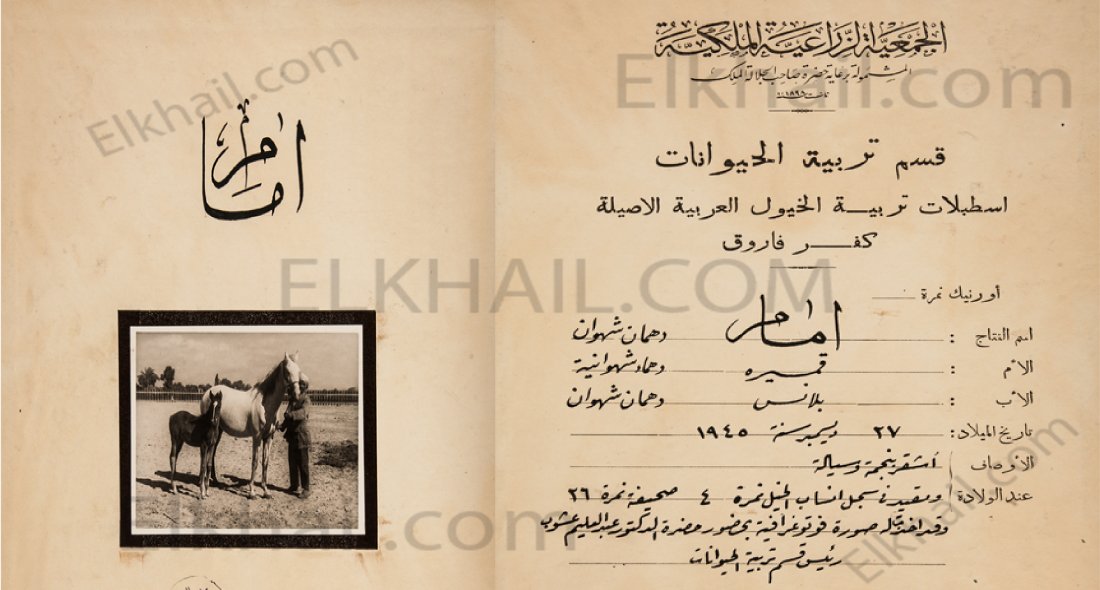 امام
الجمعية الزراعية الملكية
المشمولة برعاية حضرة صاحب الجلالة الملك
تأسست سنة ١٨٩٨
قسم تربية الحيوانات
اسطبلات تربية الخيول العربية الاصيلة
كفر فاروق
أورنيك نمرة
اسم النتاج : امام دهمان شهوان
الأم : قميره دهمه شهوانية
الأب : بلانس دهمان شهوان
تاريخ الميلاد : ٢٧ ديسمبر سنة ١٩٤٥
الأوصاف أشقر بنجمة وسيالة
عند الولادة ومقيد في سجل انساب الخيل نمرة ٤ صحيفة نمرة ٢٦
وقد اخذت له صورة فوتوغرافية بحضور حضرة الدكتور عبدالعليم عشوب
رئيس قسم تربية الحيوانات
Elkhail.com
Elkhail.com
ELKHAIL.COM
Elkhail.com
Elkhail.com